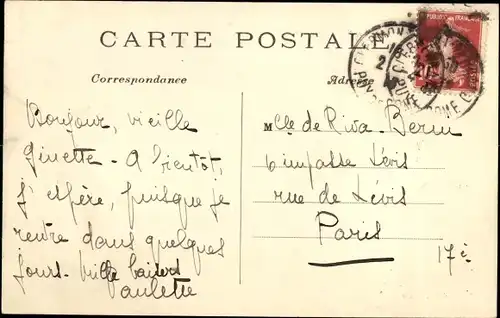 CARTE POSTALE
Correspondance
Adresse
Bonjour, vieille
Ginette - A bientôt,
j'espère, puisque je
rentre dans quelques
jours - mille baisers
Paulette
Mlle de Riva-Berni
6 impasse Lévis
rue de Lévis
Paris
17e